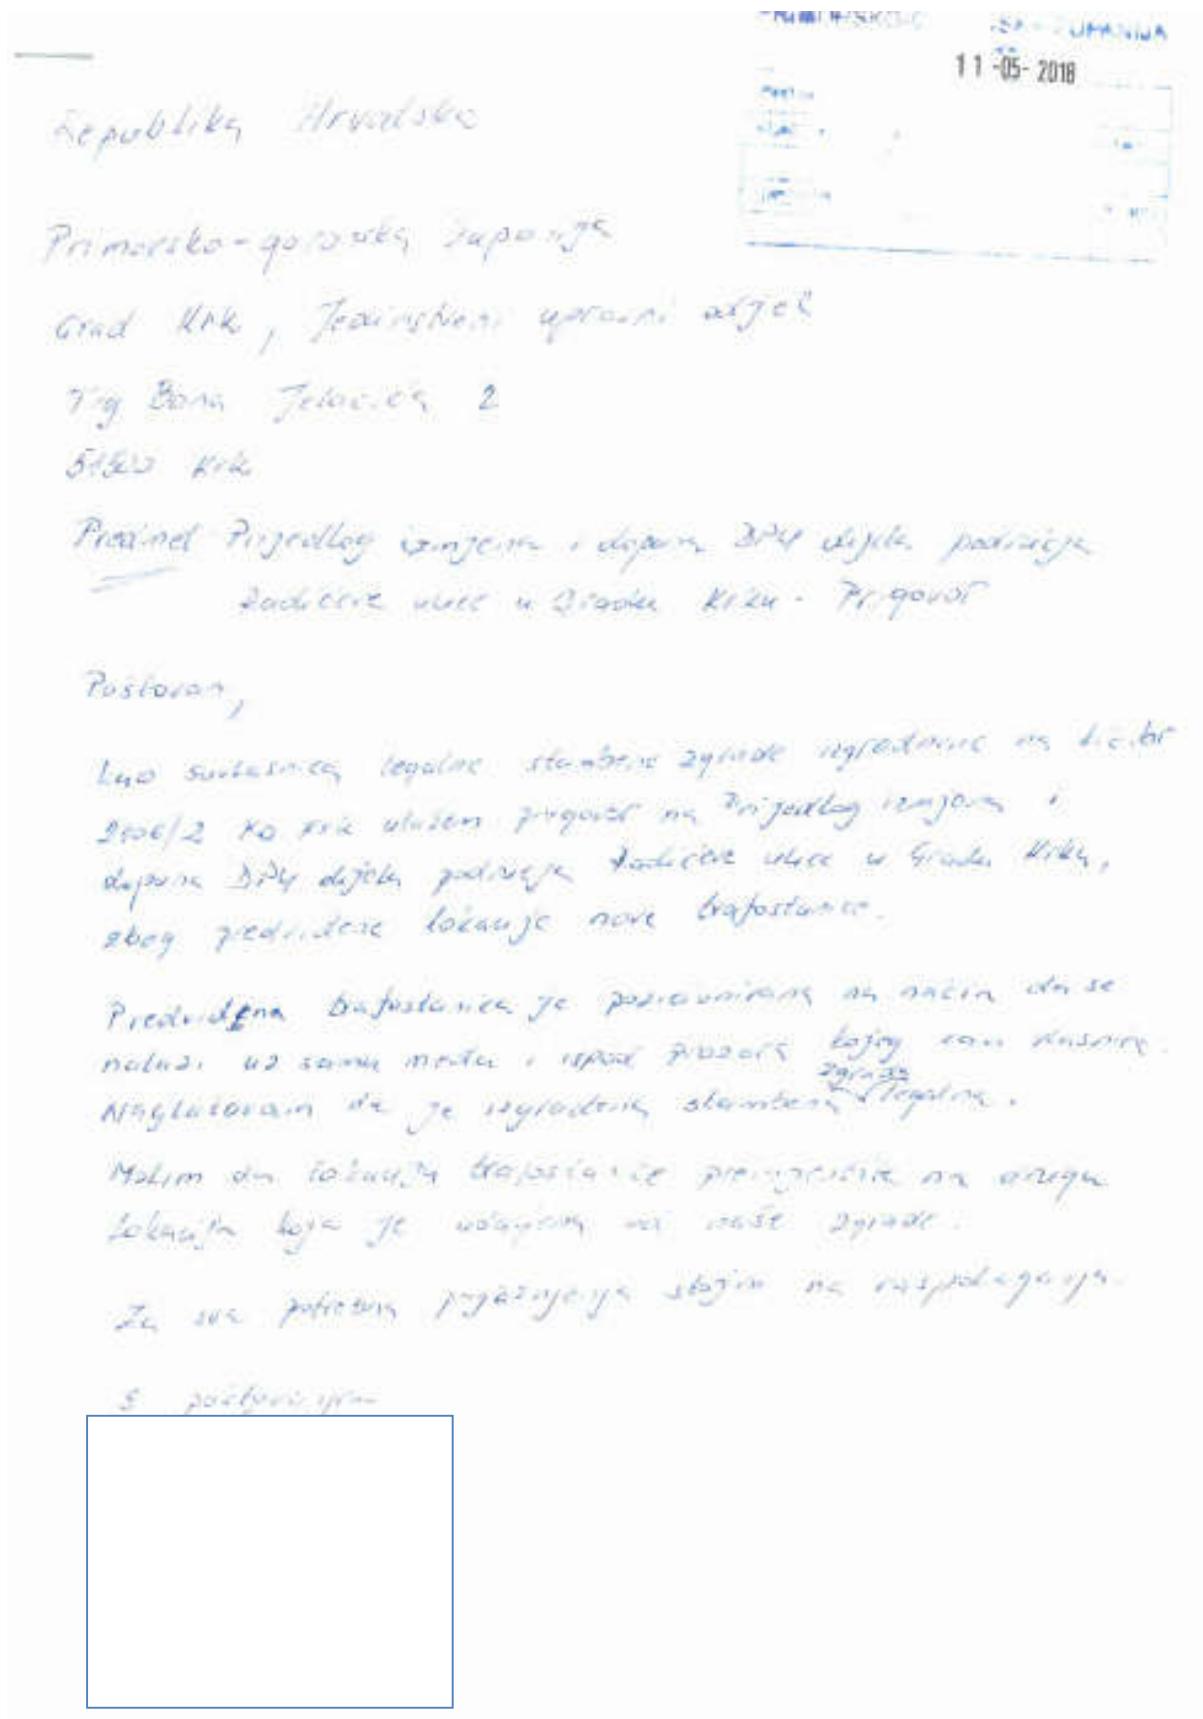 11 -05- 2018
Republika Hrvatska
Primorsko-goranska županija
Grad Krk, Jedinstveni upravni odjel
Trg Bana Jelačića 2
51500 Krk
Predmet Prijedlog izmjena i dopuna DPU dijela područja
ulice u Gradu Krku - Prigovor
Poštovani,
kao suvlasnica legalne stambene zgrade izgrađene na k.č.br
/2 KO Krk ulažem prigovor na Prijedlog izmjena i
dopuna DPU dijela područja ulice u Gradu Krku,
zbog predviđene lokacije nove trafostanice.
Predviđena trafostanica je pozicionirana na način da se
nalazi uz samu među i ispod prozora kojeg sam vlasnica.
Naglašavam da je izgrađena stambena zgrada legalna.
Molim da lokaciju trafostanice premjestite na drugu
lokaciju koja je udaljena od naše zgrade.
Za sva potrebna pojašnjenja stojim na raspolaganju.
S poštovanjem